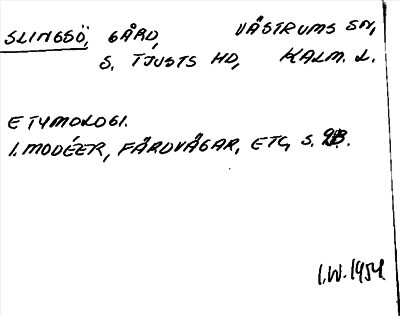 SLINGSÖ, GÅRD, VÄSTRUMS SN,
S. TJUSTS HD, KALM. L.
ETYMOLOGI.
I. MODÉER, FÄRDVÄGAR, ETC, S.
I.W. 1954